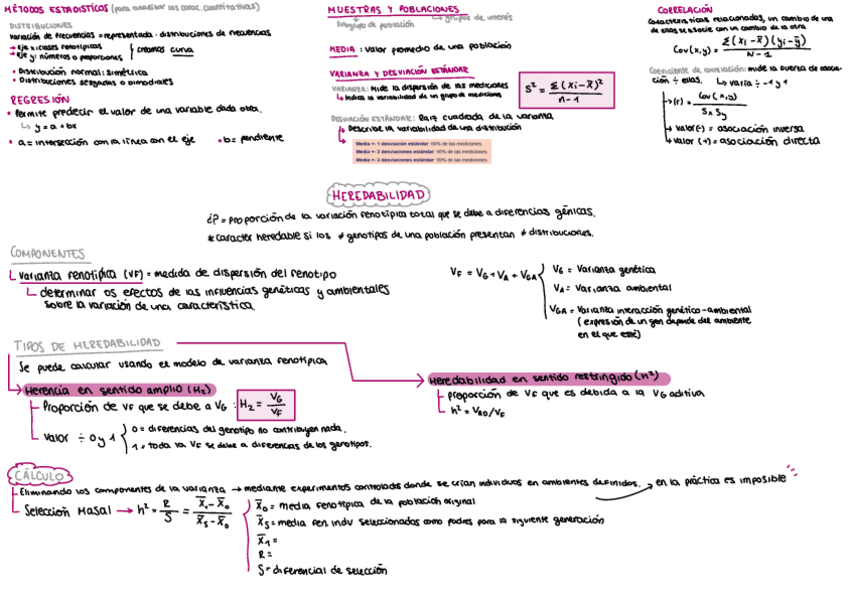 MÉTODOS ESTADISTICOS (para analizar las carac. cuantitativas)
DISTRIBUCIONES
Variación de frecuencias = representada · distribuciones de frecuencias
→ Eje x: clases fenotípicas
→ Eje y: números o proporciones
creamos curva
• Distribución normal: simétrica
• Distribuciones sesgadas o bimodales
REGRESIÓN
• Permite predecir el valor de una variable dada otra.
↳ y = a + bx
• a = intersección con la línea con el eje • b = pendiente
MUESTRAS Y POBLACIONES
↳ grupos de interés
subgrupo de población
MEDIA: valor promedio de una población
VARIANZA Y DESVIACIÓN ESTÁNDAR
VARIANZA: Mide la dispersión de las mediciones
↳ Indica la variabilidad de un grupo de mediciones
S² = Σ(xi - x̄)² / n-1
DESVIACIÓN ESTÁNDAR: Raíz cuadrada de la varianza
↳ Describe la variabilidad de una distribución
Media +- 1 desviación estándar: 66% de las mediciones.
Media +- 2 desviaciones estándar: 95% de las mediciones.
Media +- 3 desviaciones estándar: 99% de las mediciones.
CORRELACIÓN
Características relacionadas, un cambio de una
de ellas se asocie con un cambio de la otra
Cov(x,y) = Σ(xi - x̄)(yi - ȳ) / n-1
Coeficiente de correlación: mide la fuerza de asocia-
ción ÷ ellas. ↳ varía ÷ -1 y 1
→ (r) = Cov(x,y) / Sx Sy
→ valor (-) = asociación inversa
→ valor (+) = asociación directa
HEREDABILIDAD
¿P = proporción de la variación fenotípica total que se debe a diferencias génicas.
* Caracter heredable si los ≠ genotipos de una población presentan ≠ distribuciones.
COMPONENTES
Varianza fenotípica (VF) = medida de dispersión del fenotipo
determinar os efectos de las influencias genéticas y ambientales
sobre la variación de una característica.
VF = VG + VA + VGA
VG = Varianza genética
VA = Varianza ambiental
VGA = Varianza interacción genético-ambiental
(expresión de un gen depende del ambiente
en el que esté)
TIPOS DE HEREDABILIDAD
Se puede calcular usando el modelo de varianza fenotípica
Herencia en sentido amplio (H2)
Proporción de VF que se debe a VG : H2 = VG / VF
Valor ÷ 0 y 1
0 = diferencias del genotipo no contribuyen nada.
1 = toda la VF se debe a diferencias de los genotipos.
Heredabilidad en sentido restringido (h²)
proporción de VF que es debida a la VG aditiva
h² = VAD/VF
CÁLCULO
Eliminando los componentes de la varianza → mediante experimentos controlados donde se crían individuos en ambientes definidos. → en la práctica es imposible
Selección Masal → h² = R / S = X̄1 - X̄0 / X̄s - X̄0
X̄0 = media fenotípica de la población original
X̄s = media fen indv seleccionados como padres para la siguiente generación
X̄1 =
R =
S = diferencial de selección